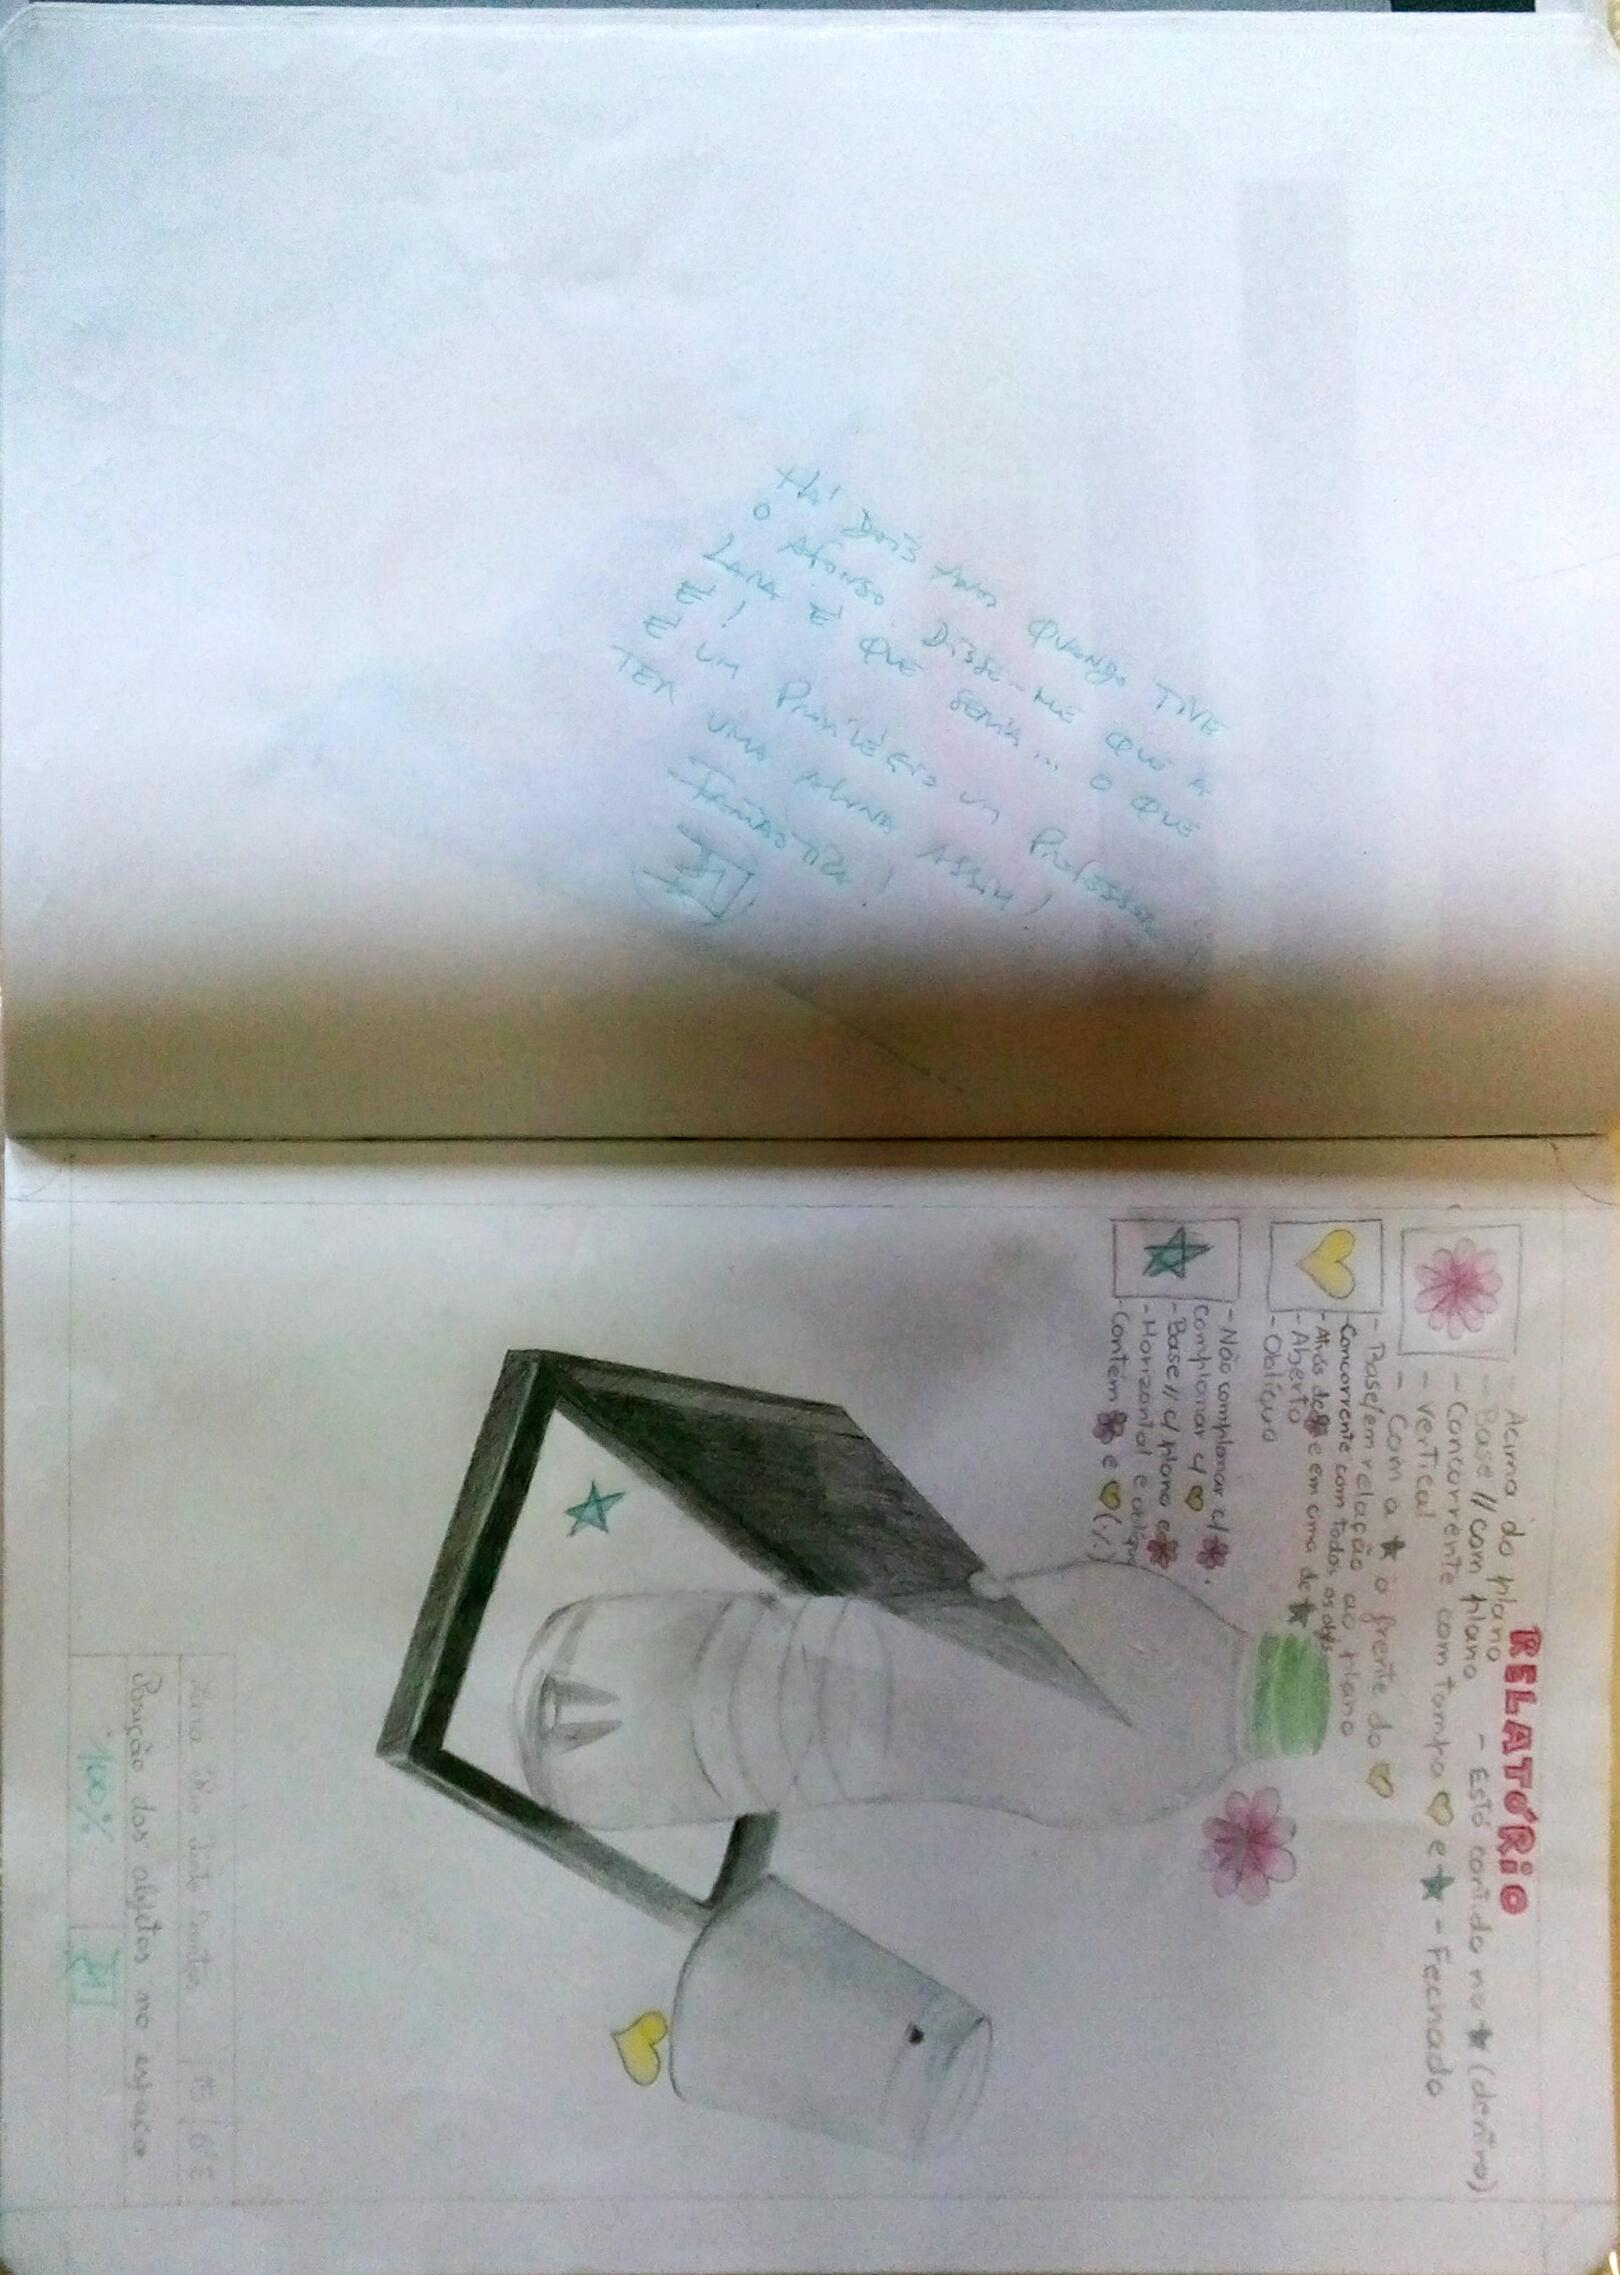 Há! Dois anos quando tive
o Afonso. Disse-me que a
Lara é que seria... o que
é!
E um privilégio um professor
ter uma aluna assim!
RELATÓRIO
- Acima do plano
- Base // com plano - Está contido no ★ (dentro)
- Concorrente com tampa 💛 e ★ - Fechado
- vertical
- Com a ★ à frente do 💛
- Base/em relação ao plano
- Concorrente com todos os objs
- Atrás de 🌸 e em cima de ★
- Aberto
- Oblíquo
- Não complanar c/ 🌸,
complanar c/ 💛
- Base // c/ plano e 🌸
- Horizontal e oblíquo
- Contém 🌸 e 💛 (½)
Santos 15 / 6ºE
Posição dos objetos no espaço
100%